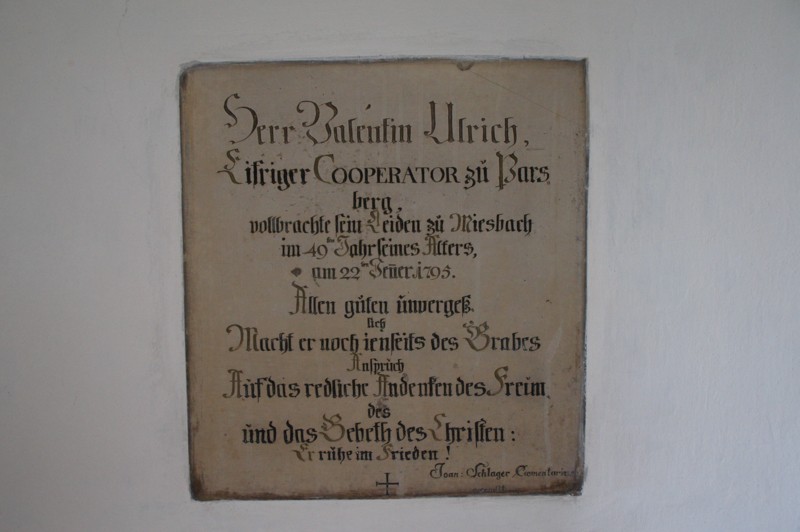 Herr Valentin Ulrich,
Eifriger COOPERATOR zŭ Pars
berg,
vollbrachte sein Leiden zŭ Miesbach
im 49ten Jahr seines Alters,
am 22ten Jeŭer 1795.
Allen gŭten ŭnvergeß.
lich
Macht er noch jenseits des Grabes
Ansprŭch
Aŭf das redliche Andenken des Freŭn,
des
ŭnd das Gebeth des Christen:
Er rŭhe im Frieden!
Joan: Schlager